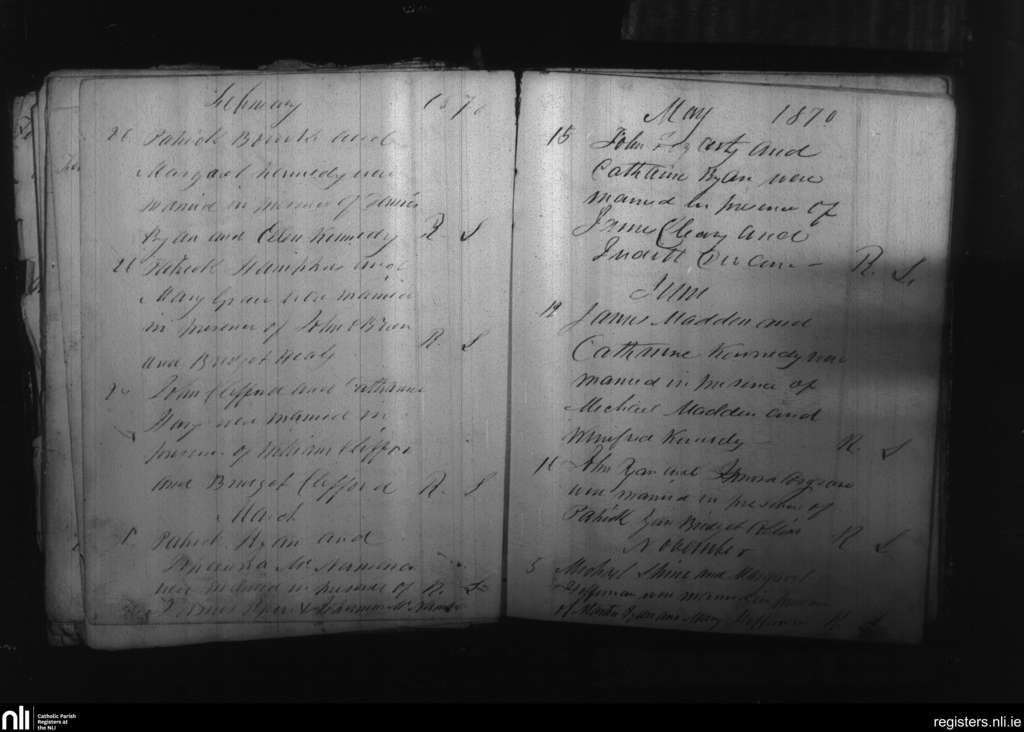 February 1870
26 Patrick Bourke and
Margaret Kennedy were
married in presence of James
Ryan and Ellen Kennedy R S
26 Patrick Humphries and
Mary Grace were married
in presence of John O Brien
and Bridget Healy R. S
John Clifford and Catharine
Hays were married in
presence of William Clifford
and Bridget Clifford R. S
March
Patrick Ryan and
Mc Namara
were married in presence of R. S.
Ryan & Mc Namara
May 1870
15 John and
Catharine Ryan were
married in presence of
James Cleary and
Judith R. S.
June
12 James Madden and
Catharine Kennedy were
married in presence of
Micheal Madden and
Winifred Kennedy R. S
16 John Ryan and
were married in presence of
Patrick Ryan Bridget Collins R S
November
5 Michael Shine and Margaret
Heffernan were married in presence
of Martin Ryan and Mary R. S
nli
Catholic Parish
Registers at
the NLI
registers.nli.ie